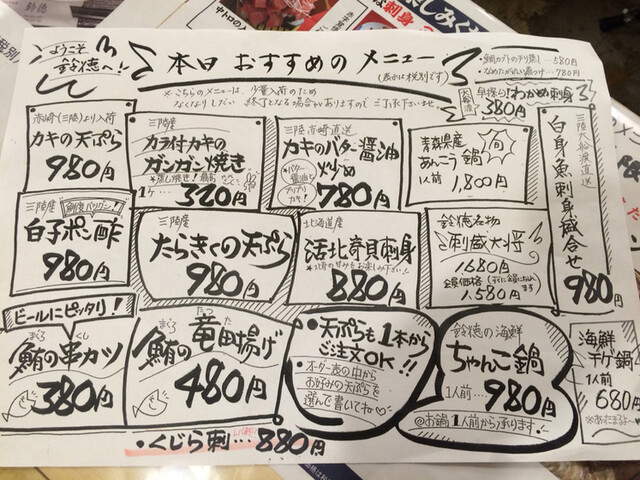 ようこそ
鈴徳へ!
本日 おすすめの メニュー
(表示は税別です)
※こちらのメニューは 少量入荷のため
なくなりしだい 終了となる場合がありますので ご了承下さいませ
580円
780円
大船渡 早採り!わかめ刺身
380円
赤崎(三陸)より入荷
カキの天ぷら
980円
三陸産
カラ付カキの
ガンガン焼き
1ケ… 320円
三陸 赤崎直送
カキのバター醤油
炒め
バター
醤油と
プリプリ
カキ!
780円
青森県産 旬
あんこう鍋
1人前
1,800円
三陸大船渡直送
白身魚刺身盛合せ
980円
三陸産
鮮度バツグン!
白子ポン酢
980円
三陸産
たらきくの天ぷら
980円
北海道産
活北寄貝刺身
880円
鈴徳名物
刺盛大将
1,680円
会員価格
1,580円
ビールにピッタリ!
まぐろ くし
鮪の串カツ
380円
まぐろ たつ た
鮪の竜田揚げ
480円
・天ぷらも1本から
ご注文OK!!
・オーダー表の中から
お好みの天ぷらを
選んで書いてね♡
鈴徳の海鮮
ちゃんこ鍋
1人前…980円
@お鍋1人前から承ります
海鮮
チゲ鍋
1人前
680円
・くじら刺…880円